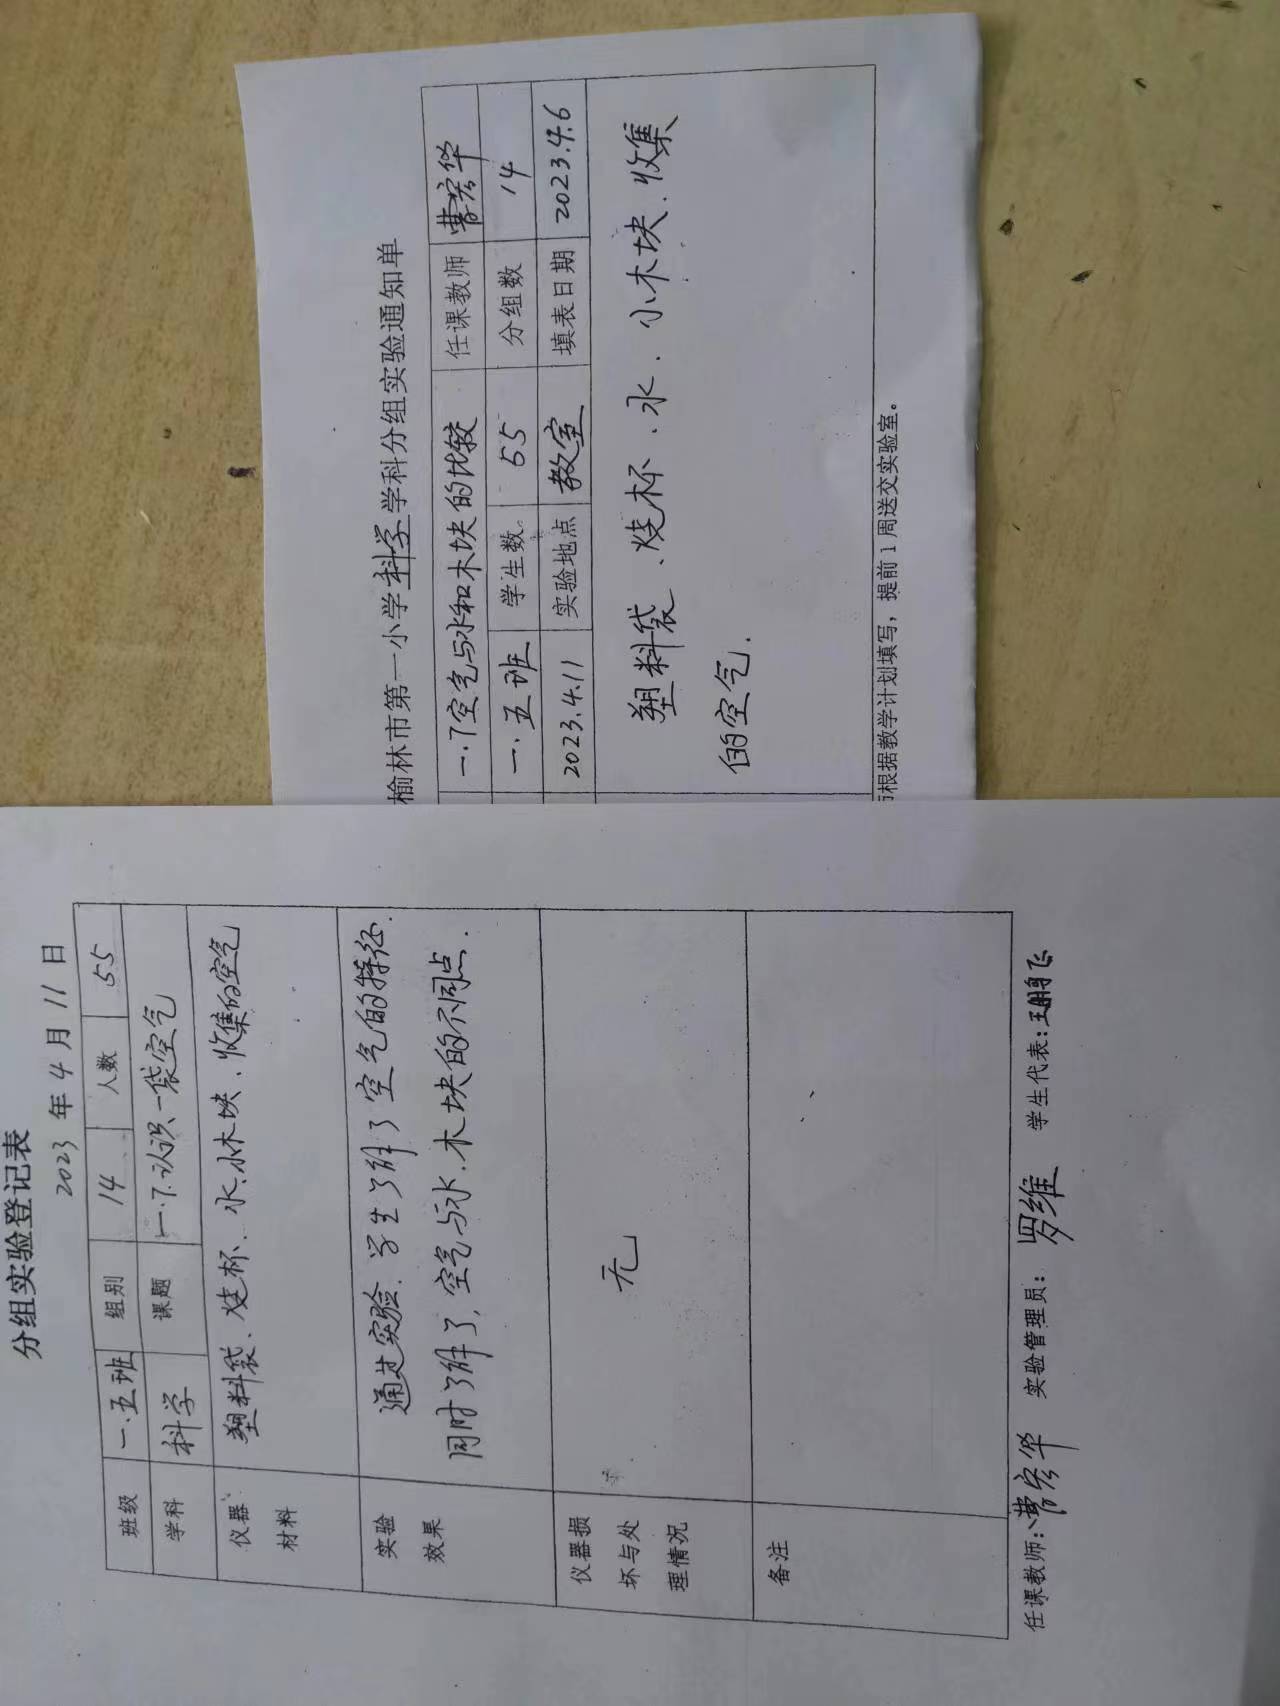 榆林市第一小学科学学科分组实验通知单
一.7空气与水和木块的比较 任课教师 曹宏华
一.五班 学生数 55 分组数 14
2023.4.11 实验地点 教室 填表日期 2023.4.6
塑料袋、烧杯、水、小木块、收集
的空气.
根据教学计划填写，提前1周送交实验室。
分组实验登记表
2023年4月11日
班级 一.五班 组别 14 人数 55
学科 科学 课题 一.7.认识一袋空气
仪器 塑料袋、烧杯、水、小木块、收集的空气
材料
实验 通过实验.学生了解了空气的特征.
效果 同时了解了,空气与水.木块的不同点.
仪器损
坏与处 无
理情况
备注
任课教师:曹宏华 实验管理员: 罗维 学生代表:王鹏飞